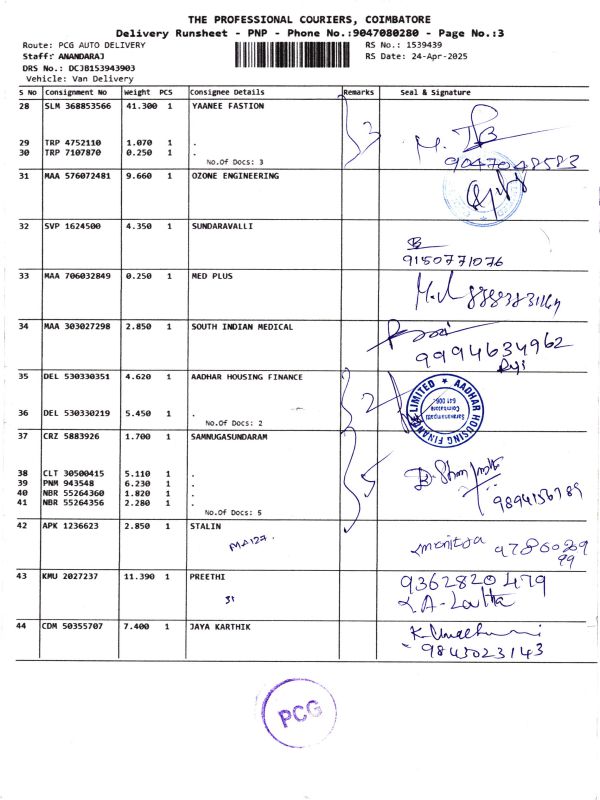 THE PROFESSIONAL COURIERS, COIMBATORE
Delivery Runsheet - PNP - Phone No.:9047080280 - Page No.:3
Route: PCG AUTO DELIVERY RS No.: 1539439
Staff: ANANDARAJ RS Date: 24-Apr-2025
DRS No.: DCJB153943903
Vehicle: Van Delivery
S No Consignment No Weight PCS Consignee Details Remarks Seal & Signature
28 SLM 368853566 41.300 1 YAANEE FASTION
3
29 TRP 4752110 1.070 1 .
30 TRP 7107870 0.250 1 .
No.Of Docs: 3 9047048583
31 MAA 576072481 9.660 1 OZONE ENGINEERING
32 SVP 1624500 4.350 1 SUNDARAVALLI
9150771076
33 MAA 706032849 0.250 1 MED PLUS
34 MAA 303027298 2.850 1 SOUTH INDIAN MEDICAL
9994634962
35 DEL 530330351 4.620 1 AADHAR HOUSING FINANCE
2
AADHAR HOUSING FINANCE LIMITED
Coimbatore
641 006
36 DEL 530330219 5.450 1 .
No.Of Docs: 2
37 CRZ 5883926 1.700 1 SAMNUGASUNDARAM
5
38 CLT 30500415 5.110 1 .
39 PNM 943548 6.230 1 .
40 NBR 55264360 1.820 1 .
41 NBR 55264356 2.280 1 .
No.Of Docs: 5 9894156789
42 APK 1236623 2.850 1 STALIN
MA127.
43 KMU 2027237 11.390 1 PREETHI 9362820479
31 L.A-Latha
44 CDM 50355707 7.400 1 JAYA KARTHIK
9843023143
PCG